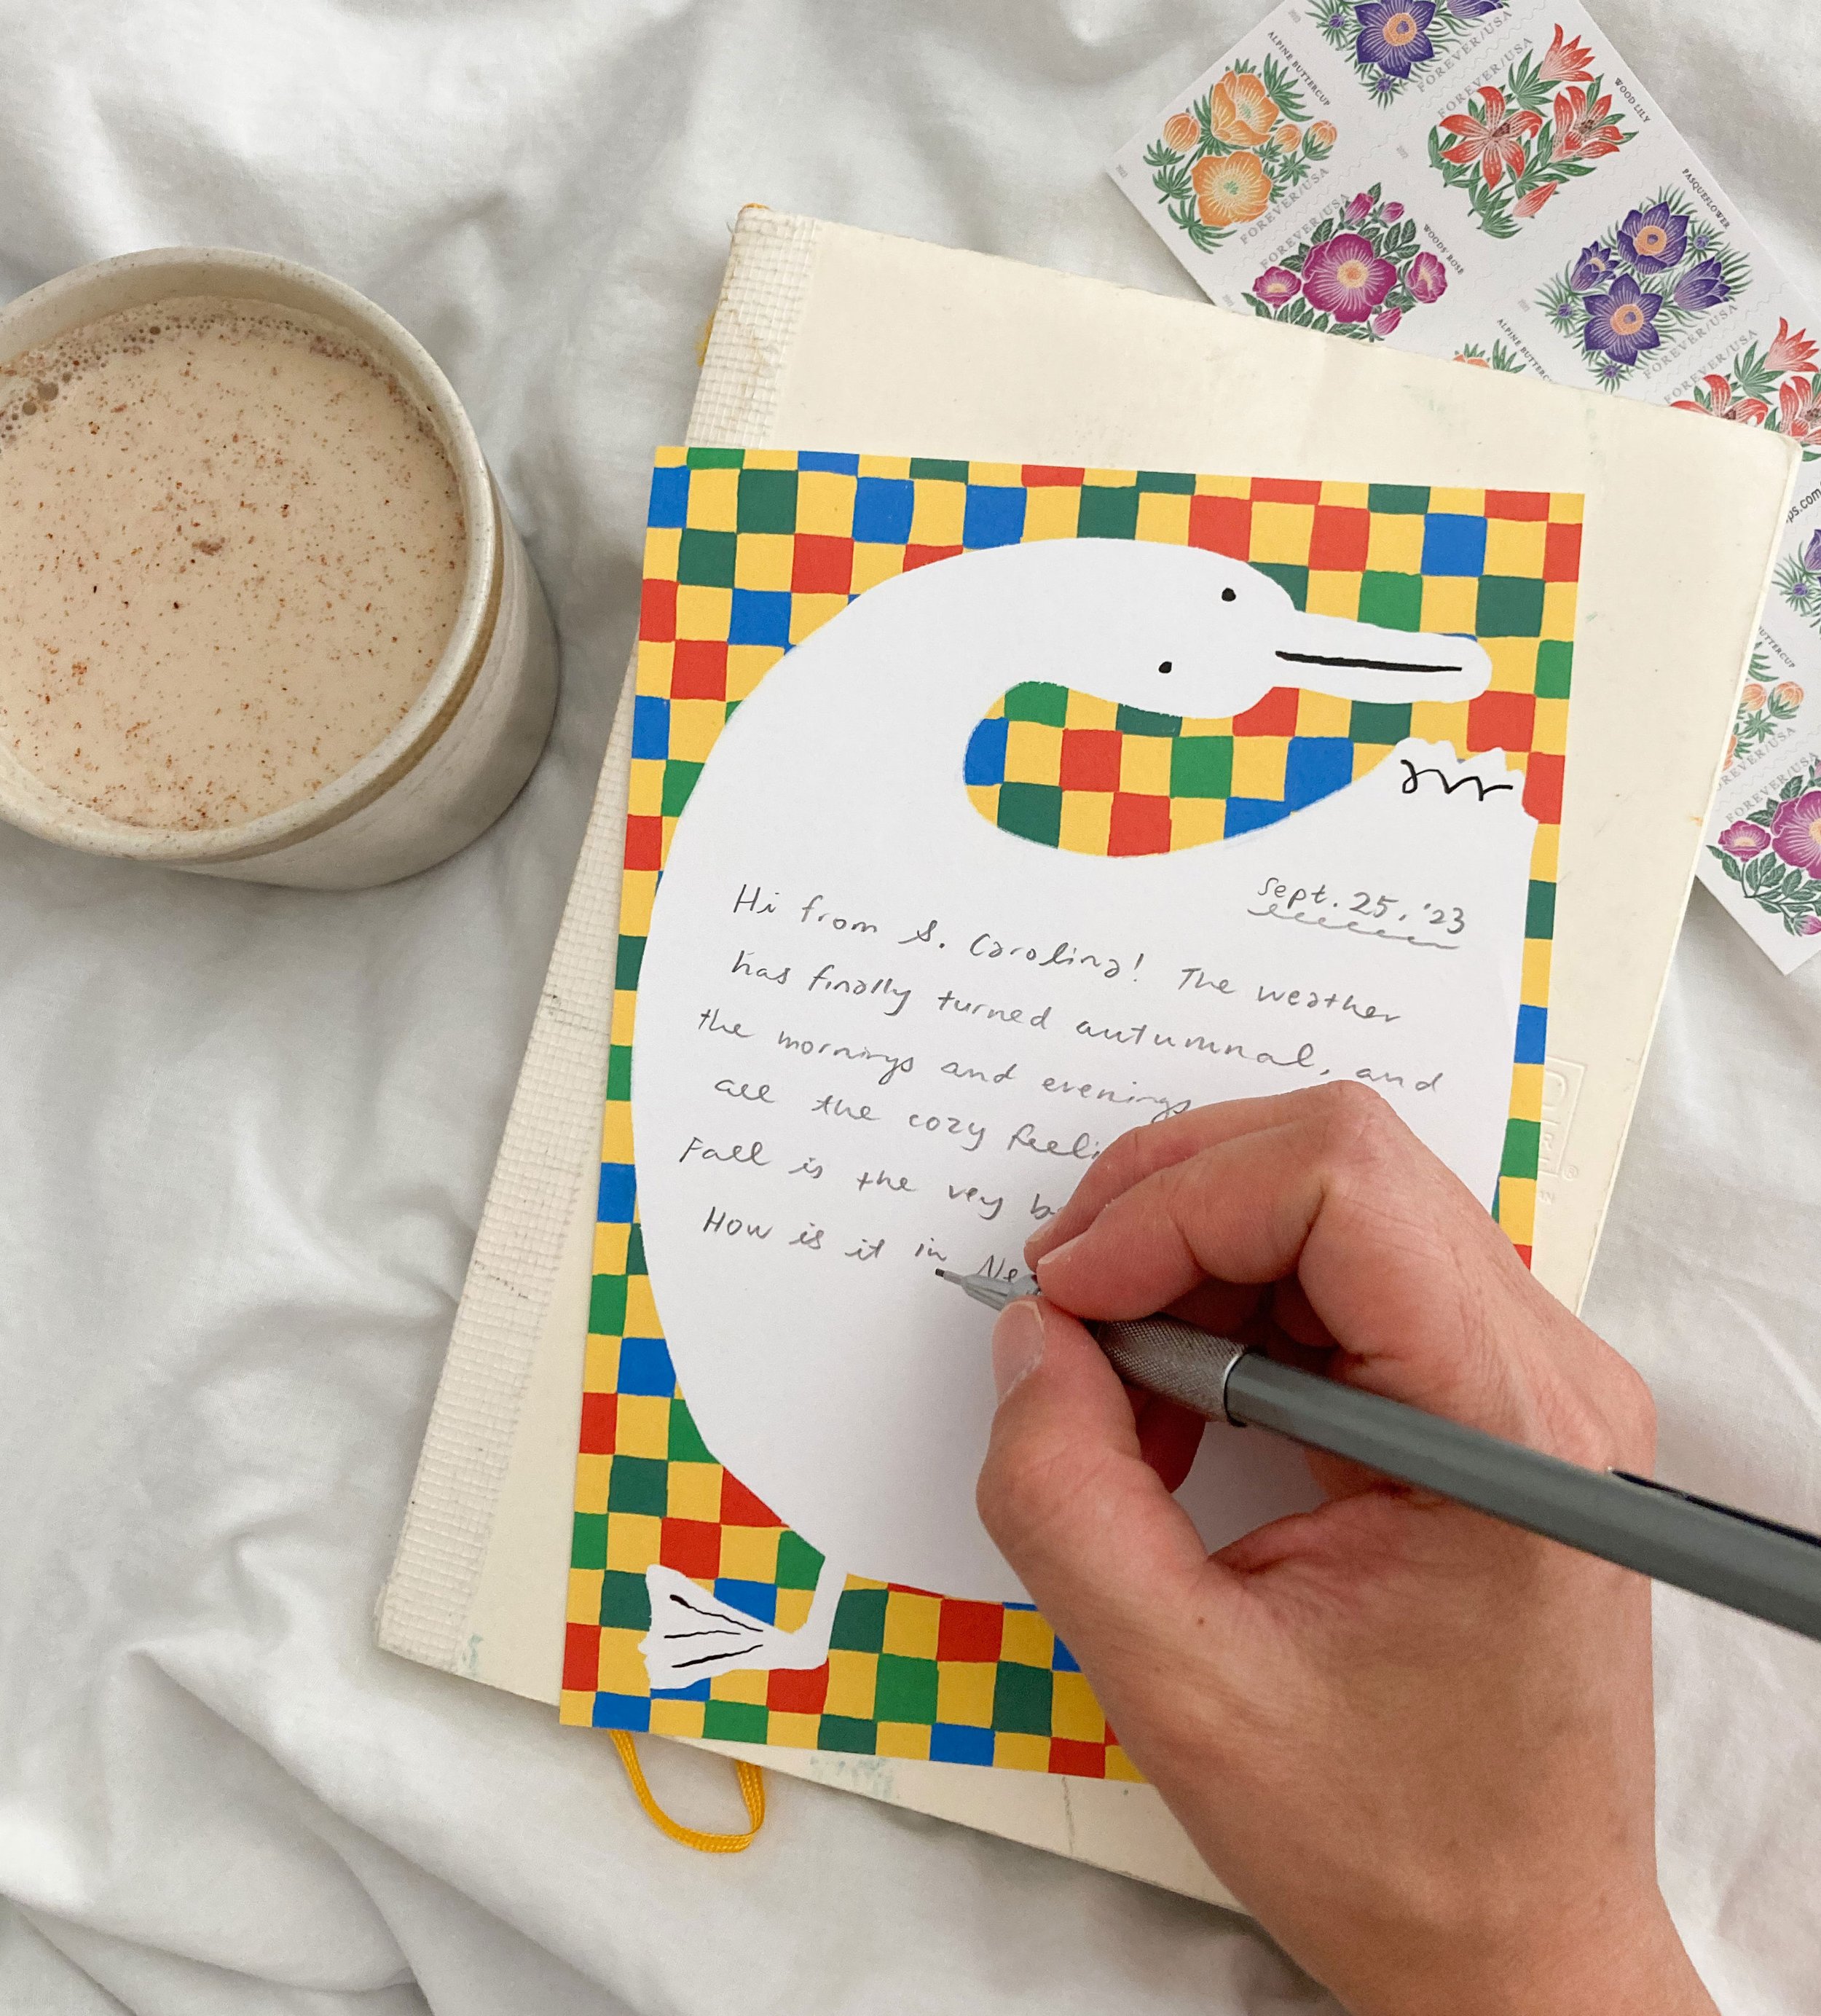 ALPINE BUTTERCUP
FOREVER/USA
FOREVER/USA
FOREVER/USA
WOOD LILY
FOREVER/USA
WOODS' ROSE
PASQUEFLOWER
FOREVER/USA
ALPINE
FOREVER/USA
FOREVER/USA
FOREVER/USA
sept. 25, '23
Hi from S. Carolina! The weather
has finally turned autumnal, and
the mornings and evenings
all the cozy
Fall is the vey
How is it in